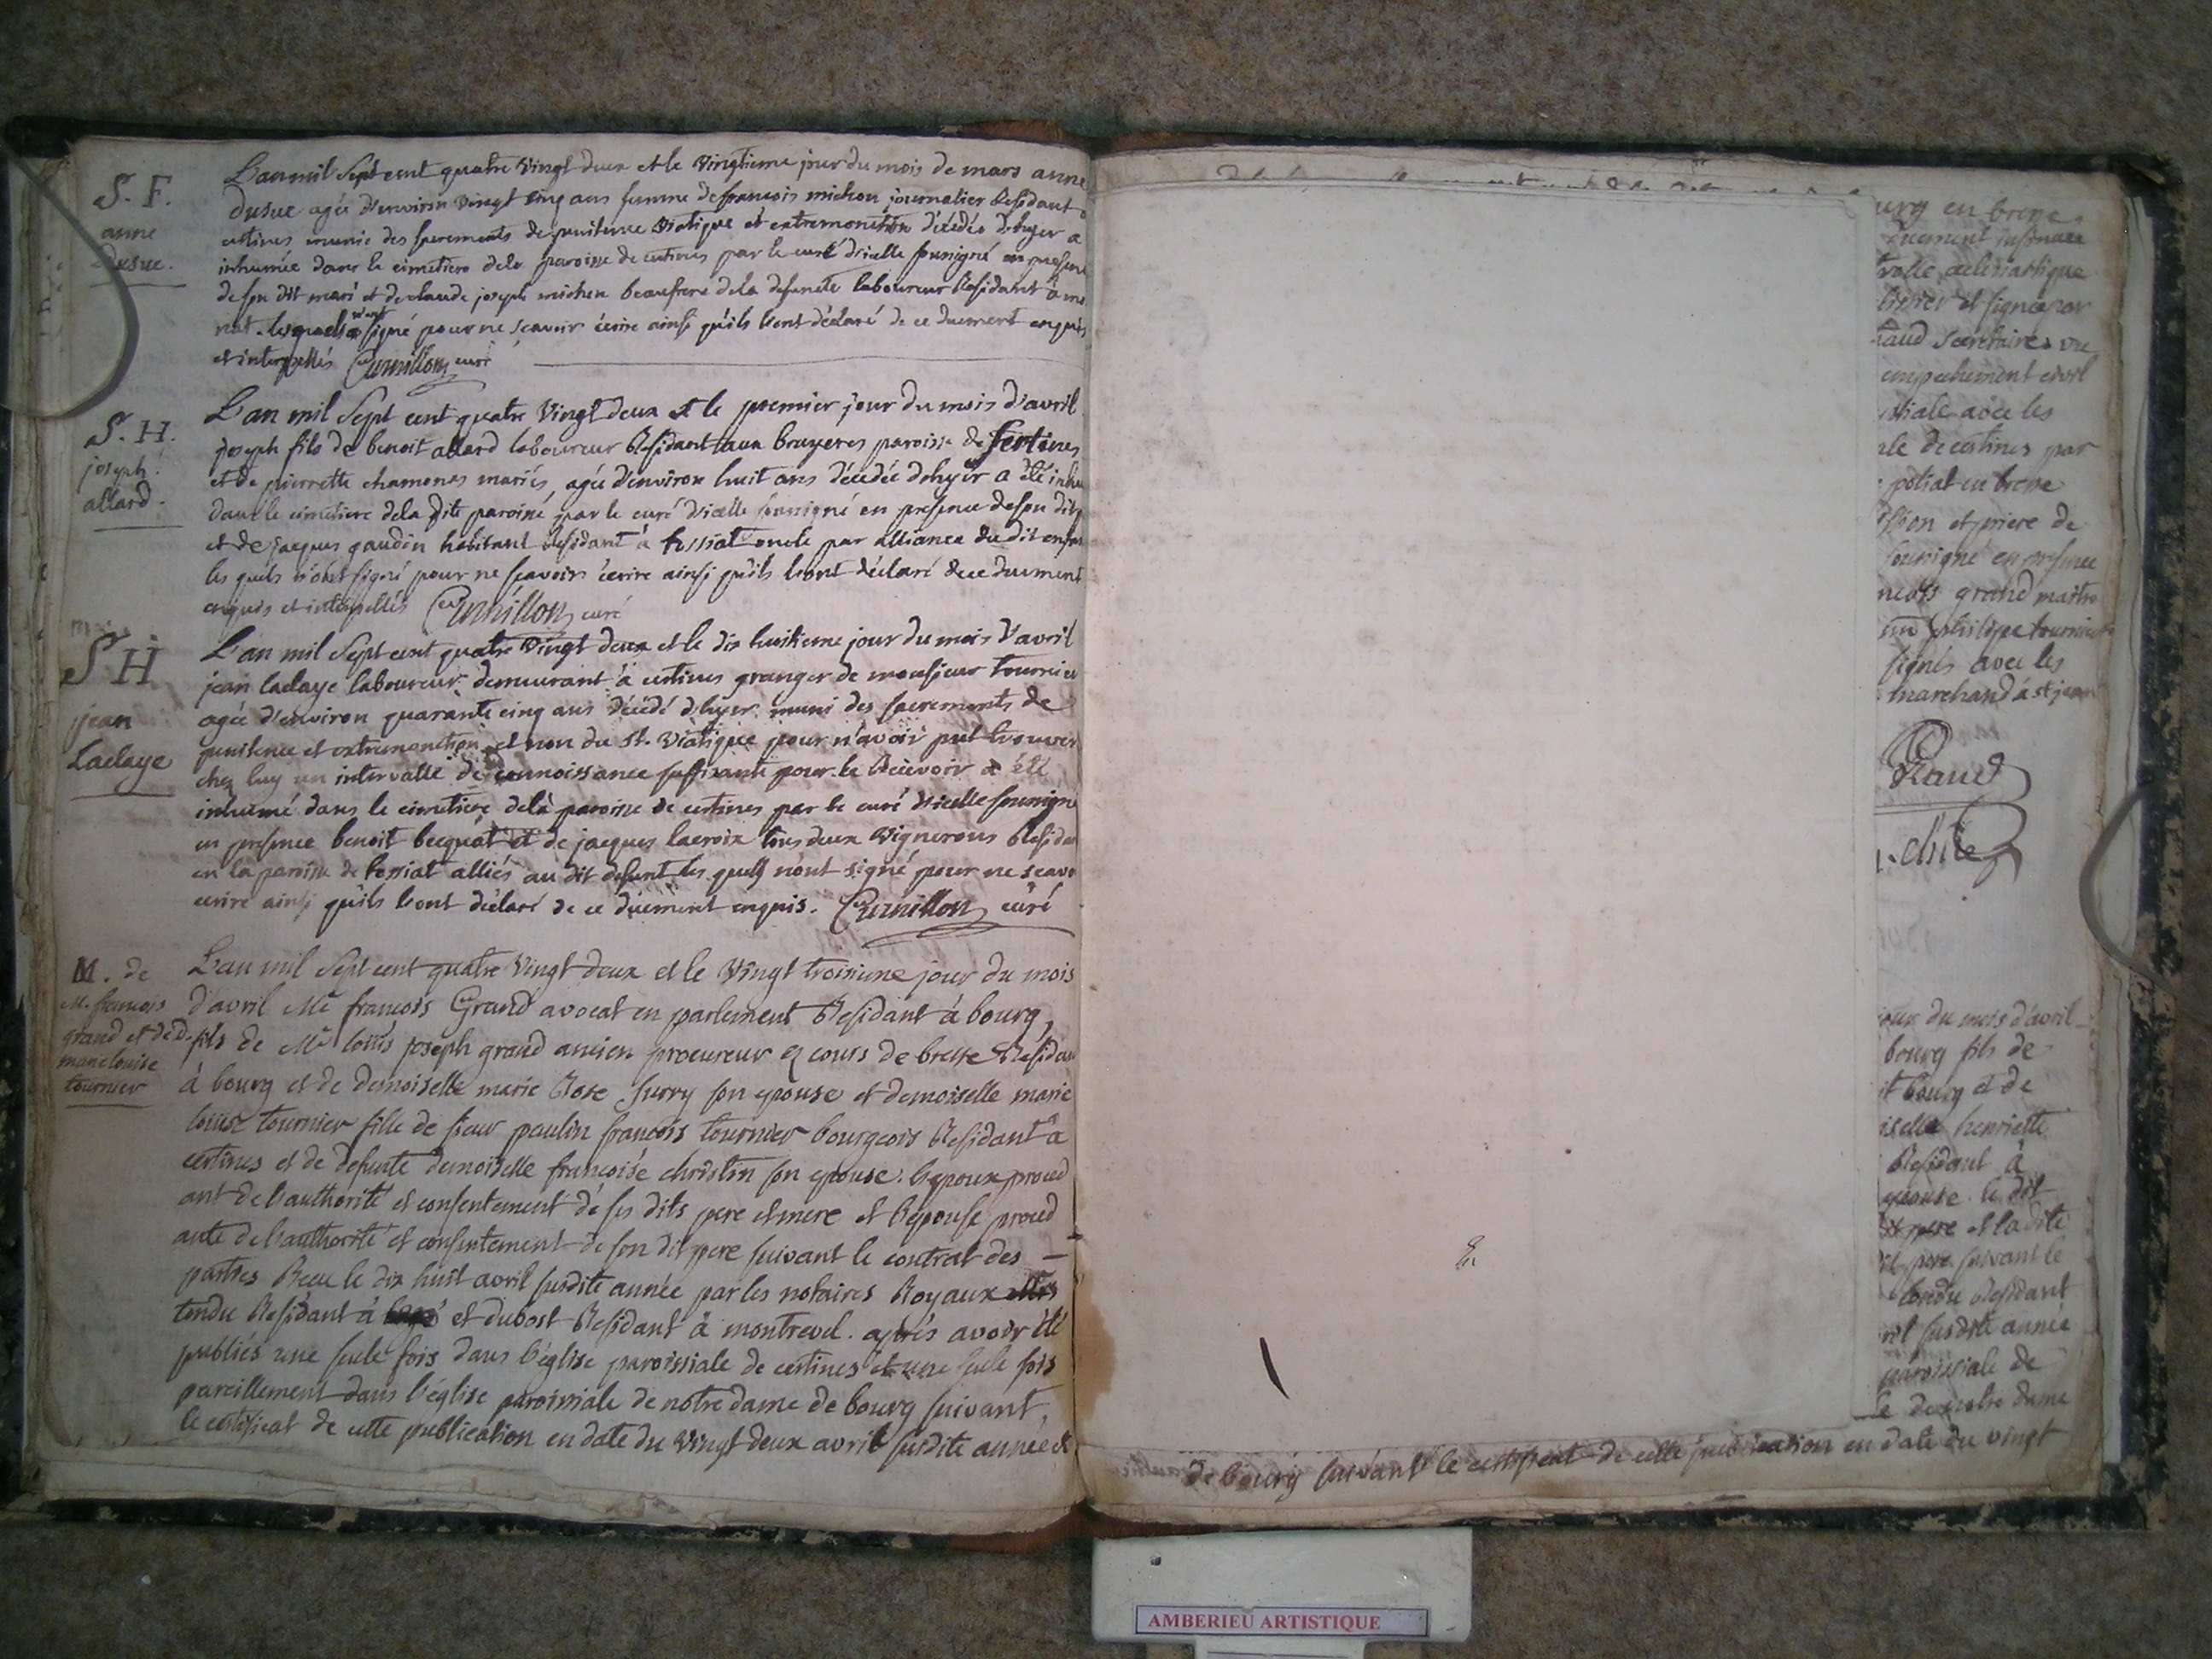 S. F.
anne
Dusuc.
L'an mil sept cent quatre vingt deux et le vingtieme jour du mois de mars anne
Dusuc agée d'environ vingt cinq ans femme de francois michon journalier Residant a
certines munie des sacrements de penitence viatique et extremonction décédée d'hyer a
inhumée dans le cimetiere de la paroisse de certines par le curé d'icelle soussigné en presen
de son dit mari et de claude joseph michon beaufrere de la defuncte laboureur Residant à
nat. lesquels n'ont signé pour ne scavoir écrire ainsi qu'ils l'ont déclaré de ce duement enquis
et interpellés Cumillon curé
S. H.
joseph
allard.
L'an mil sept cent quatre vingt deux et le premier jour du mois d'avril
joseph fils de benoit allard laboureur Residant aux bruyeres paroisse de Certines
et de pierrette chamonas mariés, agée d'environ huit ans décédée d'hyer a été inhu
dans le cimetiere de la dite paroisse par le curé d'icelle soussigné en presence de son dit
et de jacques gaudin habitant Residant à tossiat oncle par alliance du dit enfan
les quels n'ont signé pour ne scavoir écrire ainsi qu'ils l'ont déclaré de ce duement
enquis et interpellés Cumillon curé
S H
jean
Laclaye
L'an mil sept cent quatre vingt deux et le dix huitieme jour du mois d'avril
jean laclaye laboureur demeurant à certines granger de monsieur tournier
agée d'environ quarante cinq ans décédé d'hyer muni des sacrements de
penitence et extremonction et non du st. viatique pour n'avoir put trouver
chez luy un intervalle de connoissance suffisante pour le Recevoir a été
inhumé dans le cimetiere de la paroisse de certines par le curé d'icelle soussigné
en presence benoit becquat et de jacques lacroix tous deux vignerons Residan
en la paroisse de tossiat alliés au dit defunt les quels n'ont signé pour ne scavo
écrire ainsi qu'ils l'ont déclaré de ce duement enquis. Cumillon curé
M. de
M. francois
grand et de D.
marie louise
tournier
L'an mil sept cent quatre vingt deux et le vingt troisieme jour du mois
d'avril Me francois Grand avocat en parlement Residant à bourg,
fils de Me louis joseph grand ancien procureur es cours de bresse Residan
à bourg et de demoiselle marie Rose surry son epouse et demoiselle marie
louise tournier fille de sieur paulin francois tournier bourgeois Residant à
certines et de defunte demoiselle francoise christin son epouse. l'epoux proced
ant de l'authorité et consentement de ses dits pere et mere et l'epouse proced
ante de l'authorité et consentement de son dit pere suivant le contrat des
parties Recu le dix huit avril susdite année par les notaires Royaux
tondu Residant à et dubost Residant à montrevel. après avoir été
publiés une seule fois dans l'église paroissiale de certines et une seule fois
pareillement dans l'église paroissiale de notre dame de bourg suivant
le certificat de cette publication en date du vingt deux avril susdite année et
urg en bresse
duement insinuée
trolle ecclesiastique
et signé par
aud secretaire vu
empechement civil
avec les
ale de certines par
en bresse
ssion et priere de
soussigné en presence
grand maitre
philippe tournier
signés avec les
marchand à st jean
our du mois d'avril
bourg fils de
bourg et de
iselle henriette
Residant à
epouse. le dit
pere et la dite
it pere suivant le
tondu Residant
ril susdite année
paroissiale de
e de notre dame
De bourg suivant le certificat de cette publication en date du vingt
AMBERIEU ARTISTIQUE